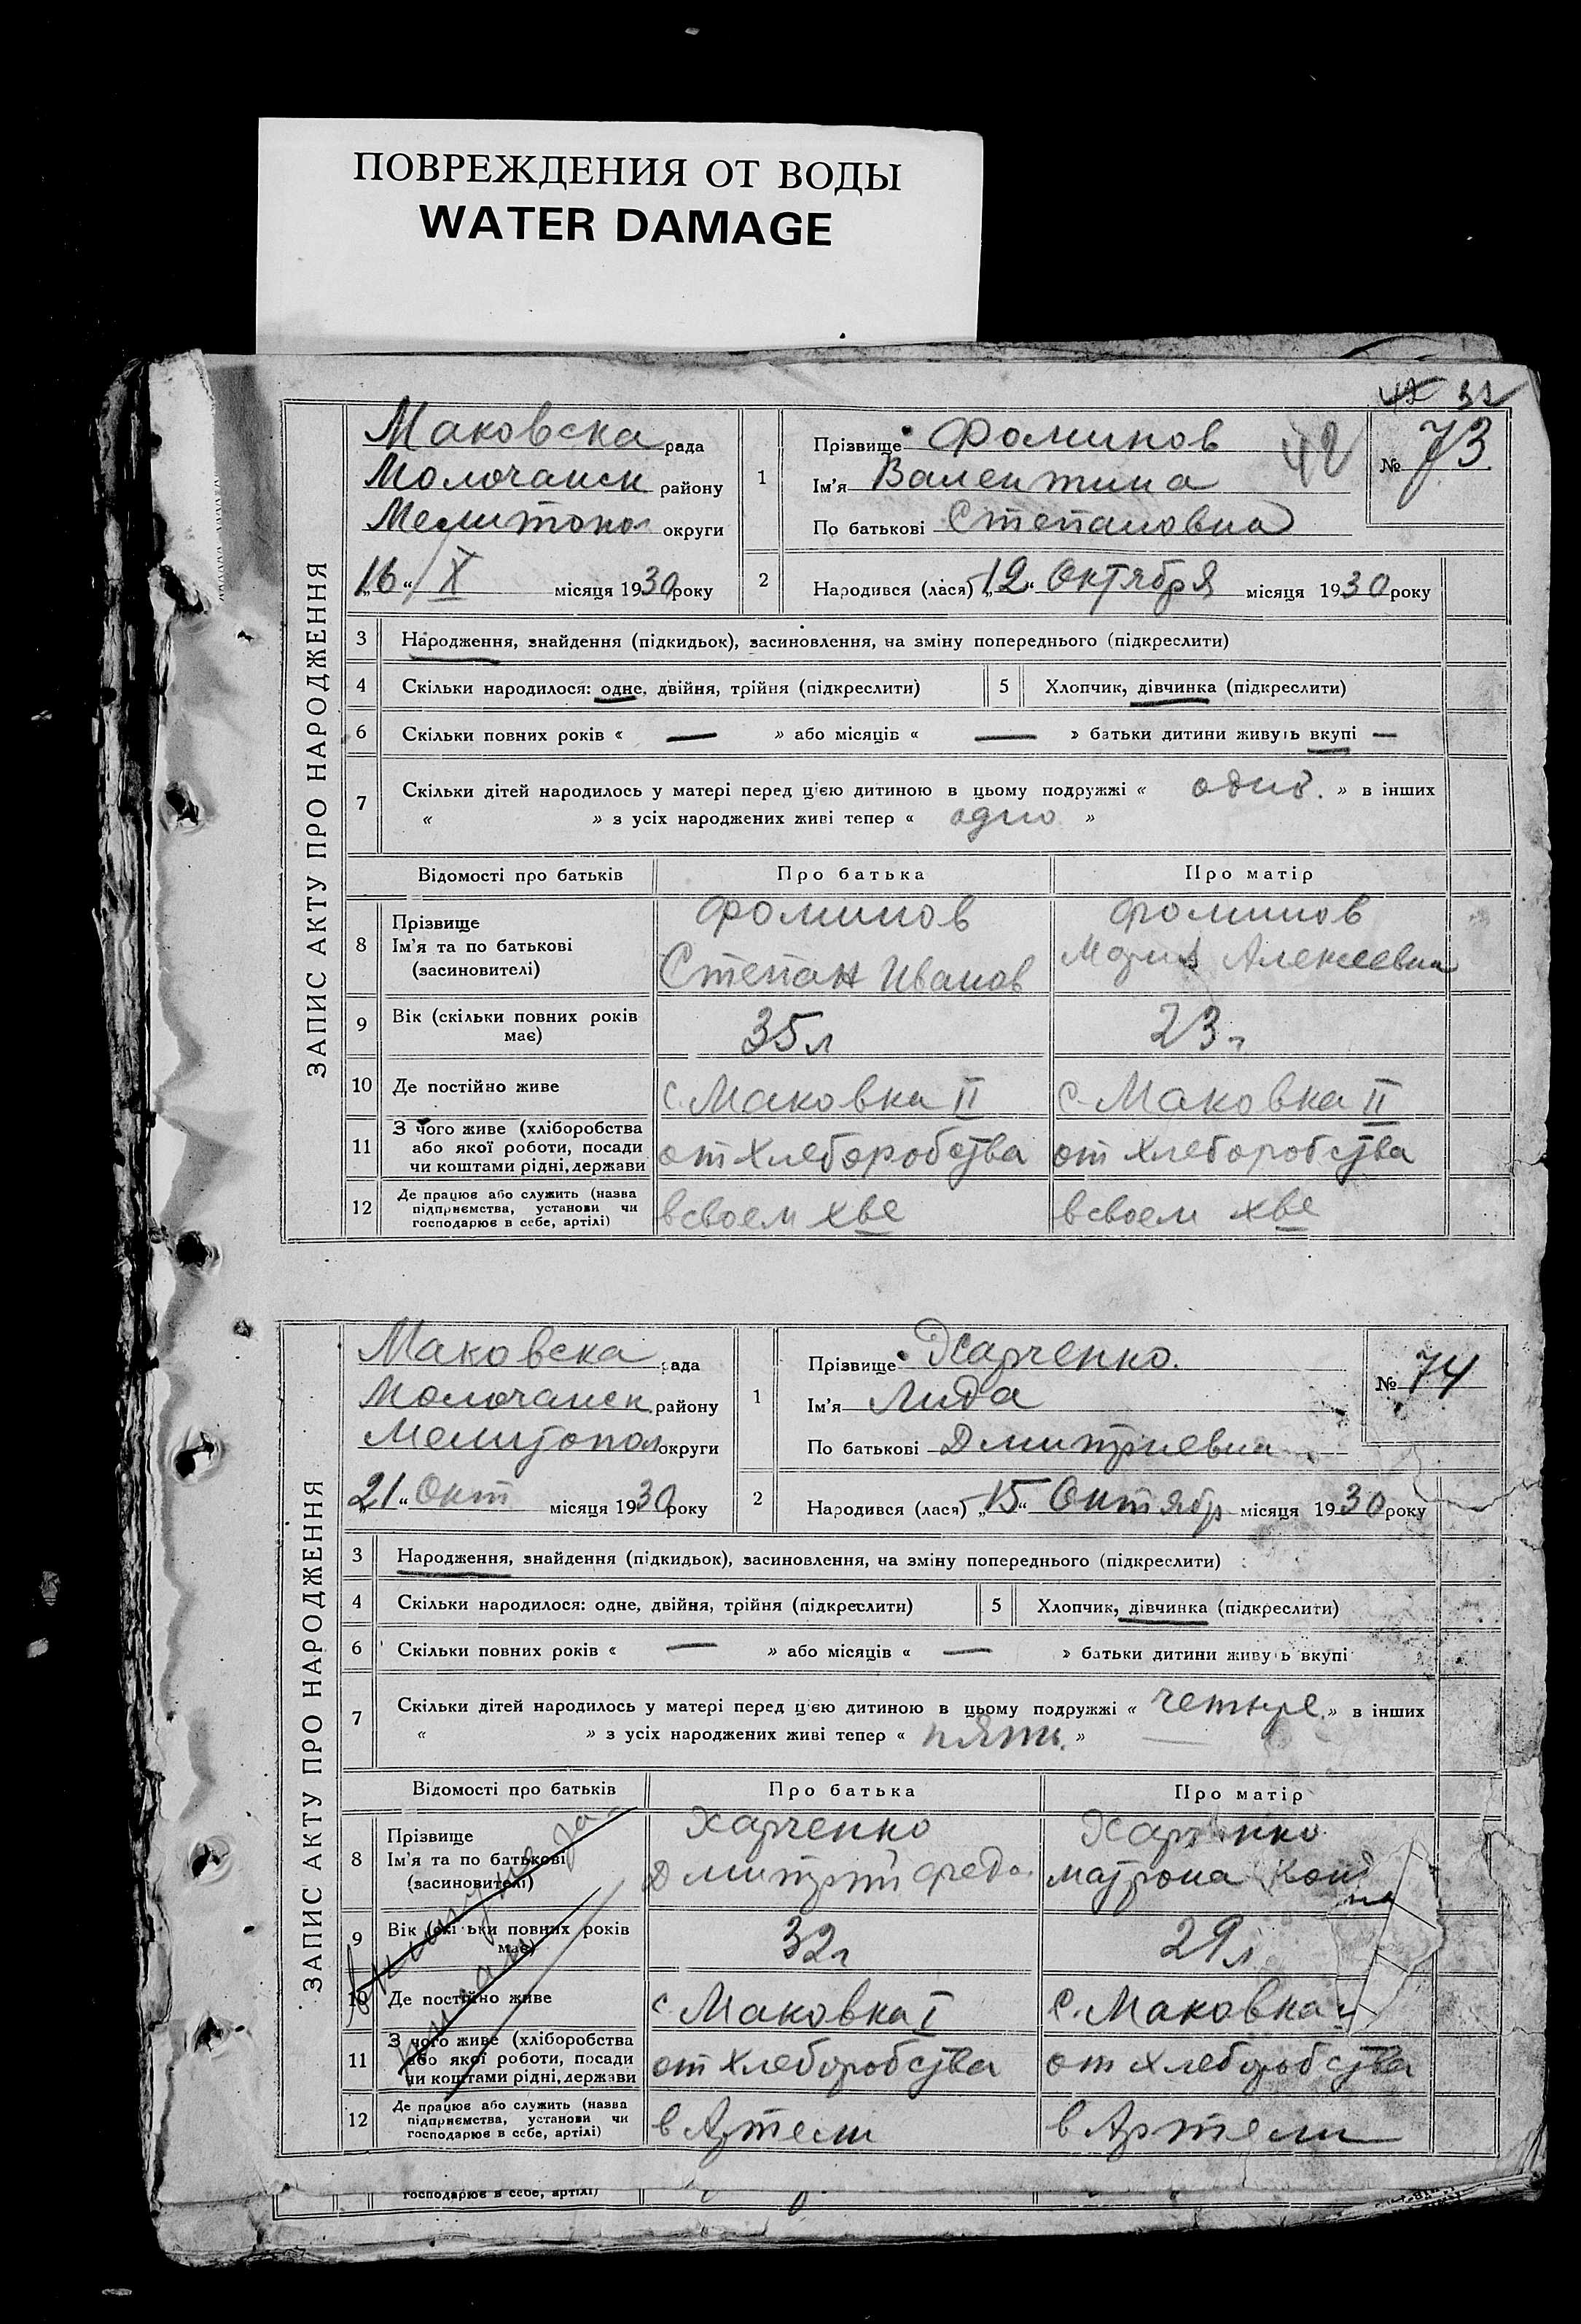 ПОВРЕЖДЕНИЯ ОТ ВОДЫ
WATER DAMAGE
32
ЗАПИС АКТУ ПРО НАРОДЖЕННЯ
Маковска рада
Молочанск району
Мелитопол округи
„16“ X місяця 1930 року
1
Прізвище Фоминов
42
Ім'я Валентина
По батькові Степановна
№ 73
2
Народився (лася) „12“ Октября місяця 1930 року
3 Народження, знайдення (підкидьок), засиновлення, на зміну попереднього (підкреслити)
4 Скільки народилося: одне, двійня, трійня (підкреслити) 5 Хлопчик, дівчинка (підкреслити)
6 Скільки повних років « — » або місяців « — » батьки дитини живуть вкупі —
7 Скільки дітей народилось у матері перед цією дитиною в цьому подружжі « одно » в інших
« » з усіх народжених живі тепер « одно »
Відомості про батьків Про батька Про матір
8 Прізвище
Ім'я та по батькові
(засиновителі)
Фоминов
Степан Иванов
Фоминов
Мария Алексеевна
9 Вік (скільки повних років
має)
35 л
23 г
10 Де постійно живе с. Маковка II с. Маковка II
11 З чого живе (хліборобства
або якої роботи, посади
чи коштами рідні, держави
от хлеборобства от хлеборобства
12 Де працює або служить (назва
підприємства, установи чи
господарює в себе, артілі)
в своем хве в своем хве
ЗАПИС АКТУ ПРО НАРОДЖЕННЯ
Маковска рада
Молочанск району
Мелитопол округи
„21“ Окт місяця 1930 року
1
Прізвище Харченко
Ім'я Лида
По батькові Дмитриевна
№ 74
2
Народився (лася) „15“ Октябр місяця 1930 року
3 Народження, знайдення (підкидьок), засиновлення, на зміну попереднього (підкреслити)
4 Скільки народилося: одне, двійня, трійня (підкреслити) 5 Хлопчик, дівчинка (підкреслити)
6 Скільки повних років « — » або місяців « — » батьки дитини живуть вкупі
7 Скільки дітей народилось у матері перед цією дитиною в цьому подружжі « четыре » в інших
« » з усіх народжених живі тепер « пять »
Відомості про батьків Про батька Про матір
8 Прізвище
Ім'я та по батькові
(засиновителі)
Харченко
Дмитрий Федо
Харченко
Матрона Конд
на
9 Вік (скільки повних років
має)
32 г
29 л
10 Де постійно живе с Маковка I с. Маковка
11 З чого живе (хліборобства
або якої роботи, посади
чи коштами рідні, держави
от хлеборобства от хлеборобства
12 Де працює або служить (назва
підприємства, установи чи
господарює в себе, артілі)
в Артели в Артели
господарює в себе, артілі)